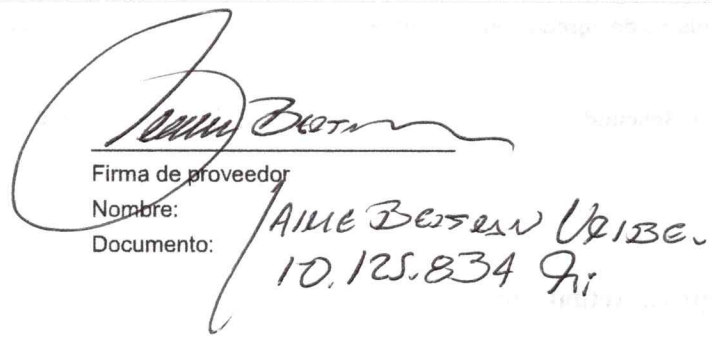 Firma de proveedor
Nombre: JAIME BELTRAN URIBE.
Documento: 10.125.834